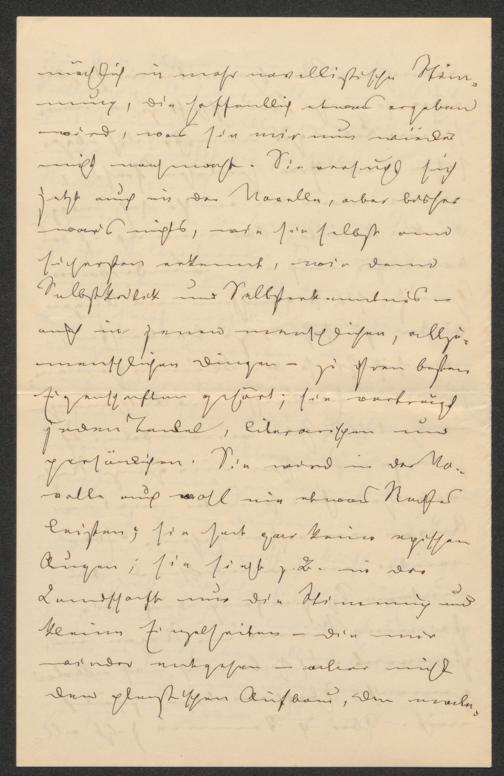 nächlich in mehr novellistischer Stim-
mung, die hoffentlich etwas ergeben
wird, was sie mir nun wieder
nicht nachmacht. Sie versucht sich
jetzt auch in der Novelle, aber bisher
war's nichts, wie sie selbst am
sichersten erkennt, wie denn
Selbstkritik und Selbsterkenntnis –
auch in jenen menschlichen, allzu-
menschlichen Dingen – zu ihren besten
Eigenschaften gehört; sie verträgt
jeden Tadel, literarischen und
persönlichen. Sie wird in der No-
velle auch wohl nie etwas Rechtes
leisten; sie hat gar keine epischen
Augen; sie sieht z. B. in der
Landschaft nur die Stimmung und
kleine Einzelheiten – die mir
wieder entgehen – aber nicht
den plastischen Aufbau, den